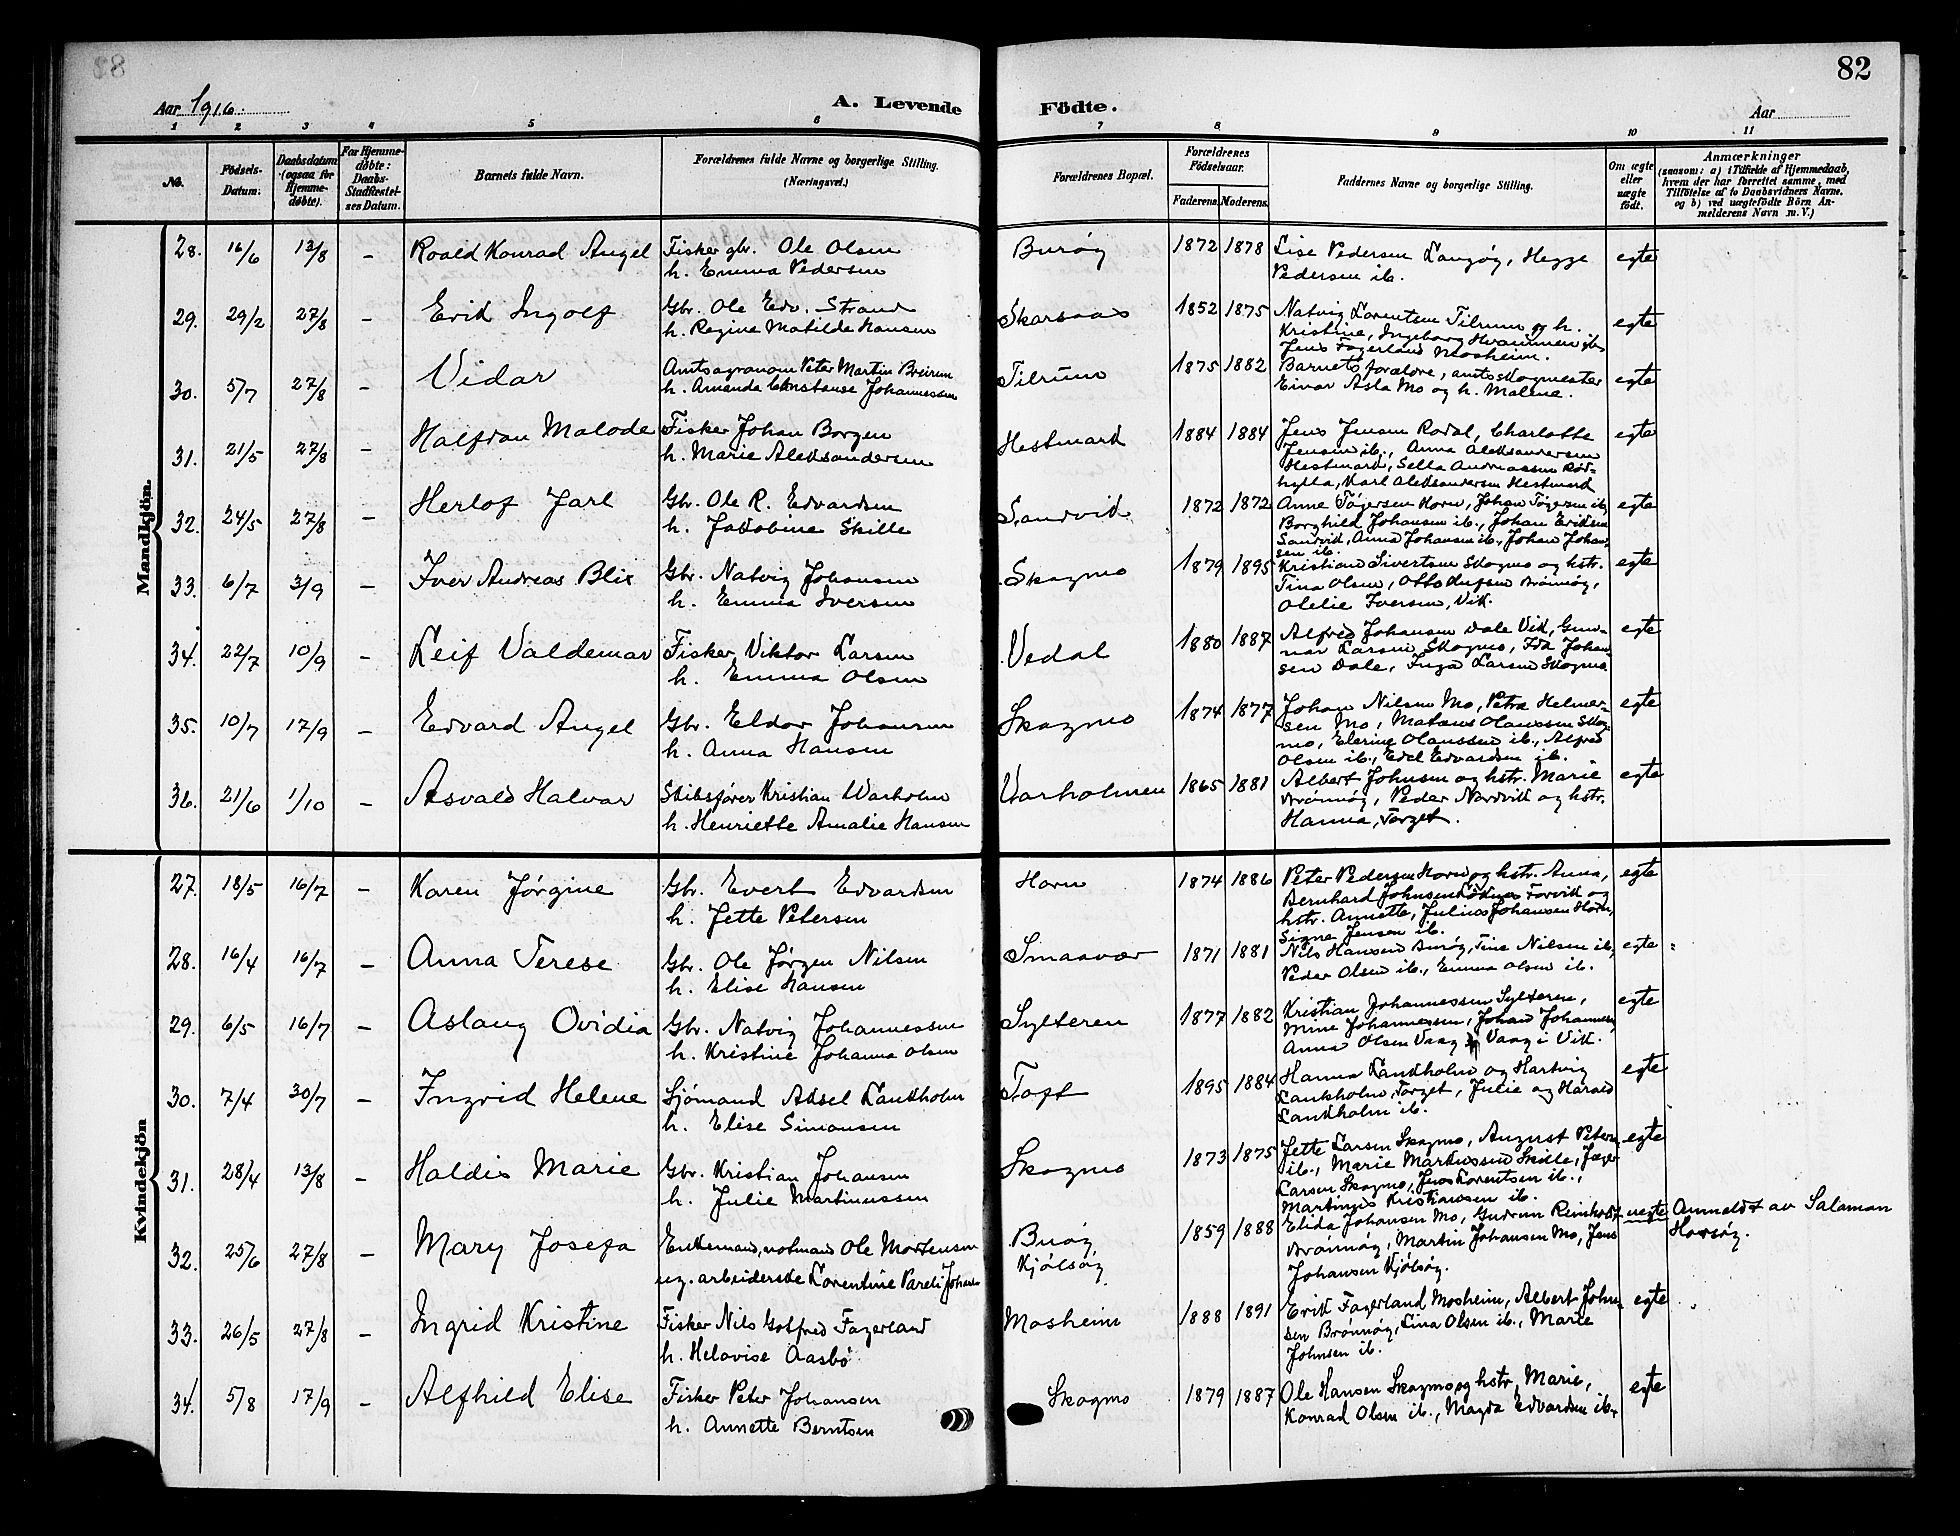 82
Aar 1916.
A. Levende Födte.
Aar
1 2 3 4 5 6 7 8 9 10 11
No.
Födsels-Datum.
Daabsdatum (ogsaa for Hjemmedøbte).
For Hjemmedøbte: Daabs-Stadfæstelses Datum.
Barnets fulde Navn.
Forældrenes fulde Navne og borgerlige Stilling. (Næringsvei.)
Forældrenes Bopæl.
Forældrenes Födselsaar.
Faderens. Moderens.
Faddernes Navne og borgerlige Stilling.
Om ægte eller uægte födt.
Anmærkninger
(saasom: a) i Tilfælde af Hjemmedaab, hvem der har forrettet samme, med Tilföielse af to Daabsvidners Navne, og b) ved uægtefödte Börn Anmelderens Navn m. V.)
Mandkjön.
28. 16/6 13/8 - Roald Konrad Angel Fisker gbr. Ole Olsen Burøy 1872 1878 Lise Pedersen Langøy, Hegge egte
h. Emma Pedersen Pedersen ib.
29. 29/2 27/8 - Erik Ingolf Gbr. Ole Edv. Strand Skarsaas 1852 1875 Natvig Lorentsen Tilrum og h. egte
h. Regine Matilde Hansen Kristine, Ingeborg Hvammen ib.
Jens Fagerland Mosheim.
30. 5/7 27/8 - Vidar Amtsagronom Peter Martin Breirem Tilrum 1875 1882 Barnets forældre, amtsskogmester egte
h. Amanda Constanse Johannessen Einar Asla Mo og h. Malene.
31. 21/5 27/8 - Halfdan Malode Fisker Johan Borgen Hestmark 1884 1884 Jens Jensen Rodal, Charlotte egte
h. Marie Aleksandersen Jensen ib., Anna Aleksandersen
Hestmark, Sella Andreassen Rød-
hylla, Karl Aleksandersen Hestmark
32. 24/5 27/8 - Herlof Jarl Gbr. Ole R. Edvardsen Sandvik 1872 1872 Anne Tøgersen Horn, Johan Tøgersen ib, egte
h. Jakobine Skille Borghild Johansen ib., Johan Eriksen
Sandvik, Anna Johansen ib., Johan Johan-
sen ib.
33. 6/7 3/9 Iver Andreas Blix Gbr. Natvig Johansen Skogmo 1879 1895 Kristian Sivertsen Skogmo og hstr. egte
h. Emma Iversen Tina Olsen, Otto Brønnøy,
Olelie Iversen, Vik.
34. 22/7 10/9 - Leif Valdemar Fisker Viktor Larsen Vedal 1880 1887 Alfred Johansen Dale Vik, Gun- egte
h. Emma Olsen nar Larsen Skogmo, Ida Johan
sen Dale, Inga Larsen Skogmo
35. 10/7 17/9 - Edvard Angel Gbr. Eldor Johansen Skogmo 1874 1877 Johan Nilsen Mo, Petra Helmer- egte
h. Anna Hansen sen Mo, Olaussen Skog-
mo, Elerine Olaussen ib., Alfred
Olsen ib., Edel Edvardsen ib.
36. 21/6 1/10 - Asvald Halvar Skibsfører Kristian Warholm Varholmen 1865 1881 Albert Johnsen og hstr. Marie egte
h. Henriette Amalie Hansen Brønnøy, Peder Nordvik og hstr.
Hanna, Torget.
Kvindekjön
27. 18/5 16/7 - Karen Jørgine Gbr. Evert Edvardsen Horn 1874 1886 Peter Pedersen Horn og hstr. Anna, egte
h. Jette Petersen Bernhard Johnsen Forvik og
hstr. Annette, Julius Johansen Horn,
Signe Jensen ib.
28. 16/4 16/7 - Anna Terese Gbr. Ole Jørgen Nilsen Smaavær 1871 1881 Nils Hansen Burøy, Tine Nilsen ib, egte
h. Elise Hansen Peder Olsen ib., Emma Olsen ib.
29. 6/5 16/7 - Aslaug Ovidia Gbr. Natvig Johannessen Sylteren 1877 1882 Kristian Johannessen Sylteren, egte
h. Kristine Johanna Olsen Mine Johannessen, Johan Johannessen
Anna Olsen Vaag Vaag i Vik.
30. 7/4 30/7 - Ingrid Helene Sjømand Aksel Lankholm Toft 1895 1884 Hanna Lankholm og Hartvig egte
h. Elise Simonsen Lankholm, Torget, Julie og Harald
Lankholm ib.
31. 28/4 13/8 - Haldis Marie Gbr. Kristian Johansen Skogmo 1873 1875 Jette Larsen Skogmo, August Peters egte
h. Julie Martinussen ib., Marie Martinussen Skille, Jæger
Larsen Skogmo, Jens Lorentsen ib.,
Kristiansen ib.
32. 25/6 27/8 - Mary Josefa Enkemand, notmand Ole Mortensen Buøy 1859 1888 Elida Johansen Mo, Gudrun Reinholdt uegte Anmeldt av Salamon
ug. arbeiderske Lorentine Pareli Johans Kjølsøy Brønnøy, Martin Johansen Mo, Jens Horsøy.
Johansen Kjølsøy.
33. 26/5 27/8 - Ingrid Kristine Fisker Nils Gotfred Fagerland Mosheim 1888 1891 Erik Fagerland Mosheim, Albert John- egte
h. Helovise Aasbø sen Brønnøy, Lina Olsen ib., Marie
Johnsen ib.
34. 5/8 17/9 - Alfhild Elise Fisker Peter Johansen Skogmo 1879 1887 Ole Hansen Skogmo og hstr. Marie, egte
h. Annette Berntsen Konrad Olsen ib., Magda Edvardsen ib.